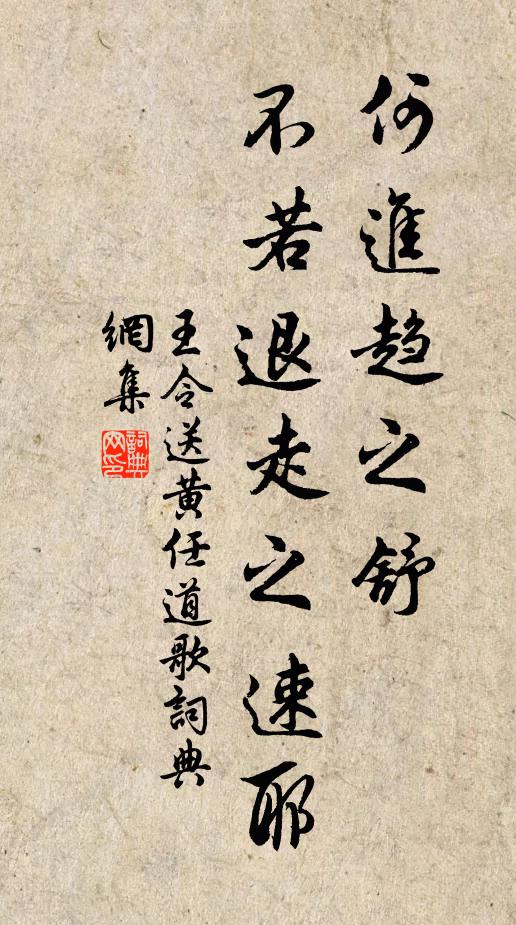 何進趨之舒
不若退走之速耶
王令送黃任道歌詞典
網集
詞典
网印